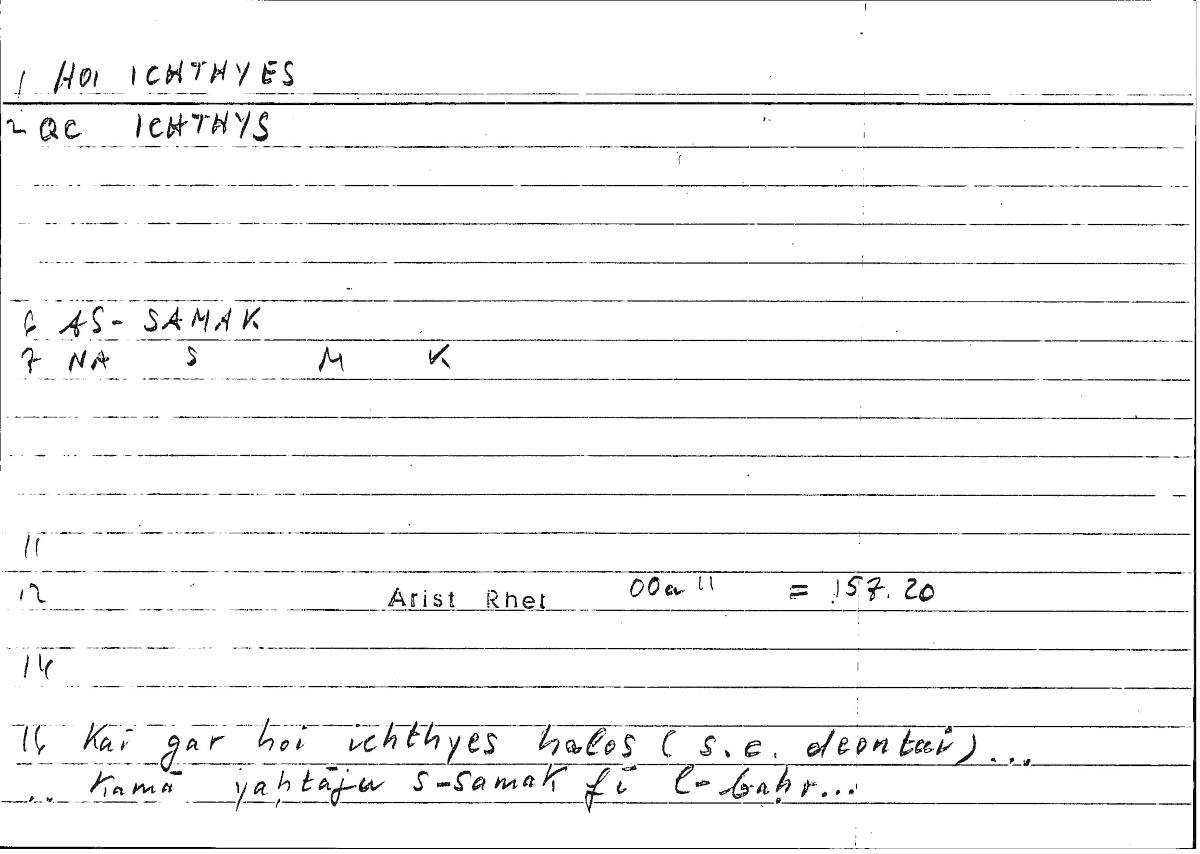 1 HOI ICHTHYES
2 QC ICHTHYS
6 AS- SAMAK
7 NA S M K
11
12 Arist Rhet 00a 11 = 157.20
14
16 Kai gar hoi ichthyes halos (s.c. deontai)...
.. Kamā yaḥtāju s-samak fī l-baḥr...